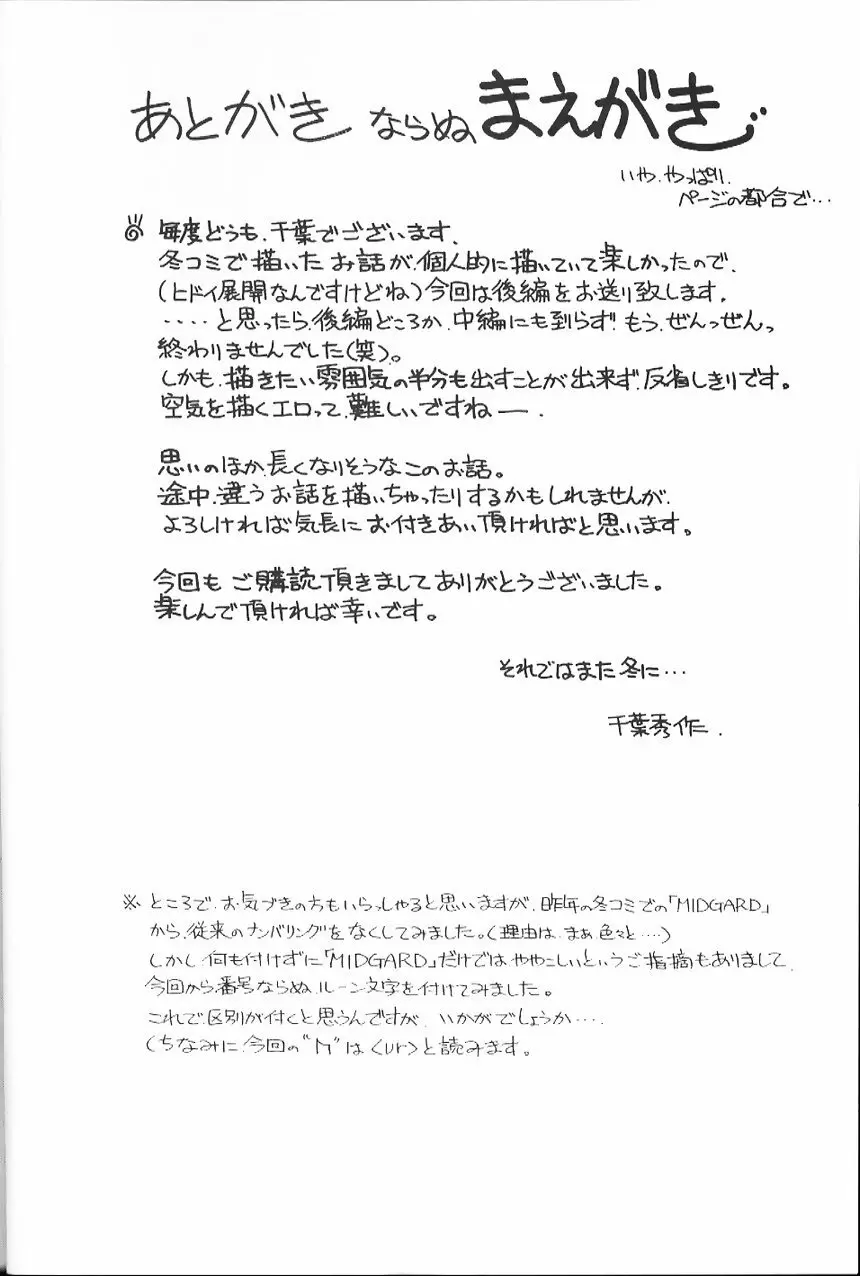 あとがき ならぬ まえがき
いや、やっぱり、
ページの都合で…
毎度どうも、千葉でございます。
冬コミで描いたお話が、個人的に描いていて楽しかったので、
(ヒドイ展開なんですけどね)今回は後編をお送り致します。
・・・・と思ったら、後編どころか、中編にも到らず!もう、ぜんっぜんっ
終わりませんでした(笑)。
しかも、描きたい雰囲気の半分も出すことが出来ず、反省しきりです。
空気を描くエロって、難しいですねー。
思いのほか、長くなりそうなこのお話。
途中、違うお話を描いちゃったりするかもしれませんが、
よろしければ気長にお付きあい頂ければと思います。
今回もご購読頂きましてありがとうございました。
楽しんで頂ければ幸いです。
それではまた冬に…
千葉秀作.
※ところで、お気づきの方もいらっしゃると思いますが、昨年の冬コミでの「MIDGARD」
から、従来のナンバリングをなくしてみました。(理由は、まぁ、色々と…)
しかし、何も付けずに「MIDGARD」だけでは、ややこしいというご指摘もありまして、
今回から番号ならぬ、ルーン文字を付けてみました。
これで区別が付くと思うんですが、いかがでしょうか….
(ちなみに、今回の"ᚢ"は<ur>と読みます。